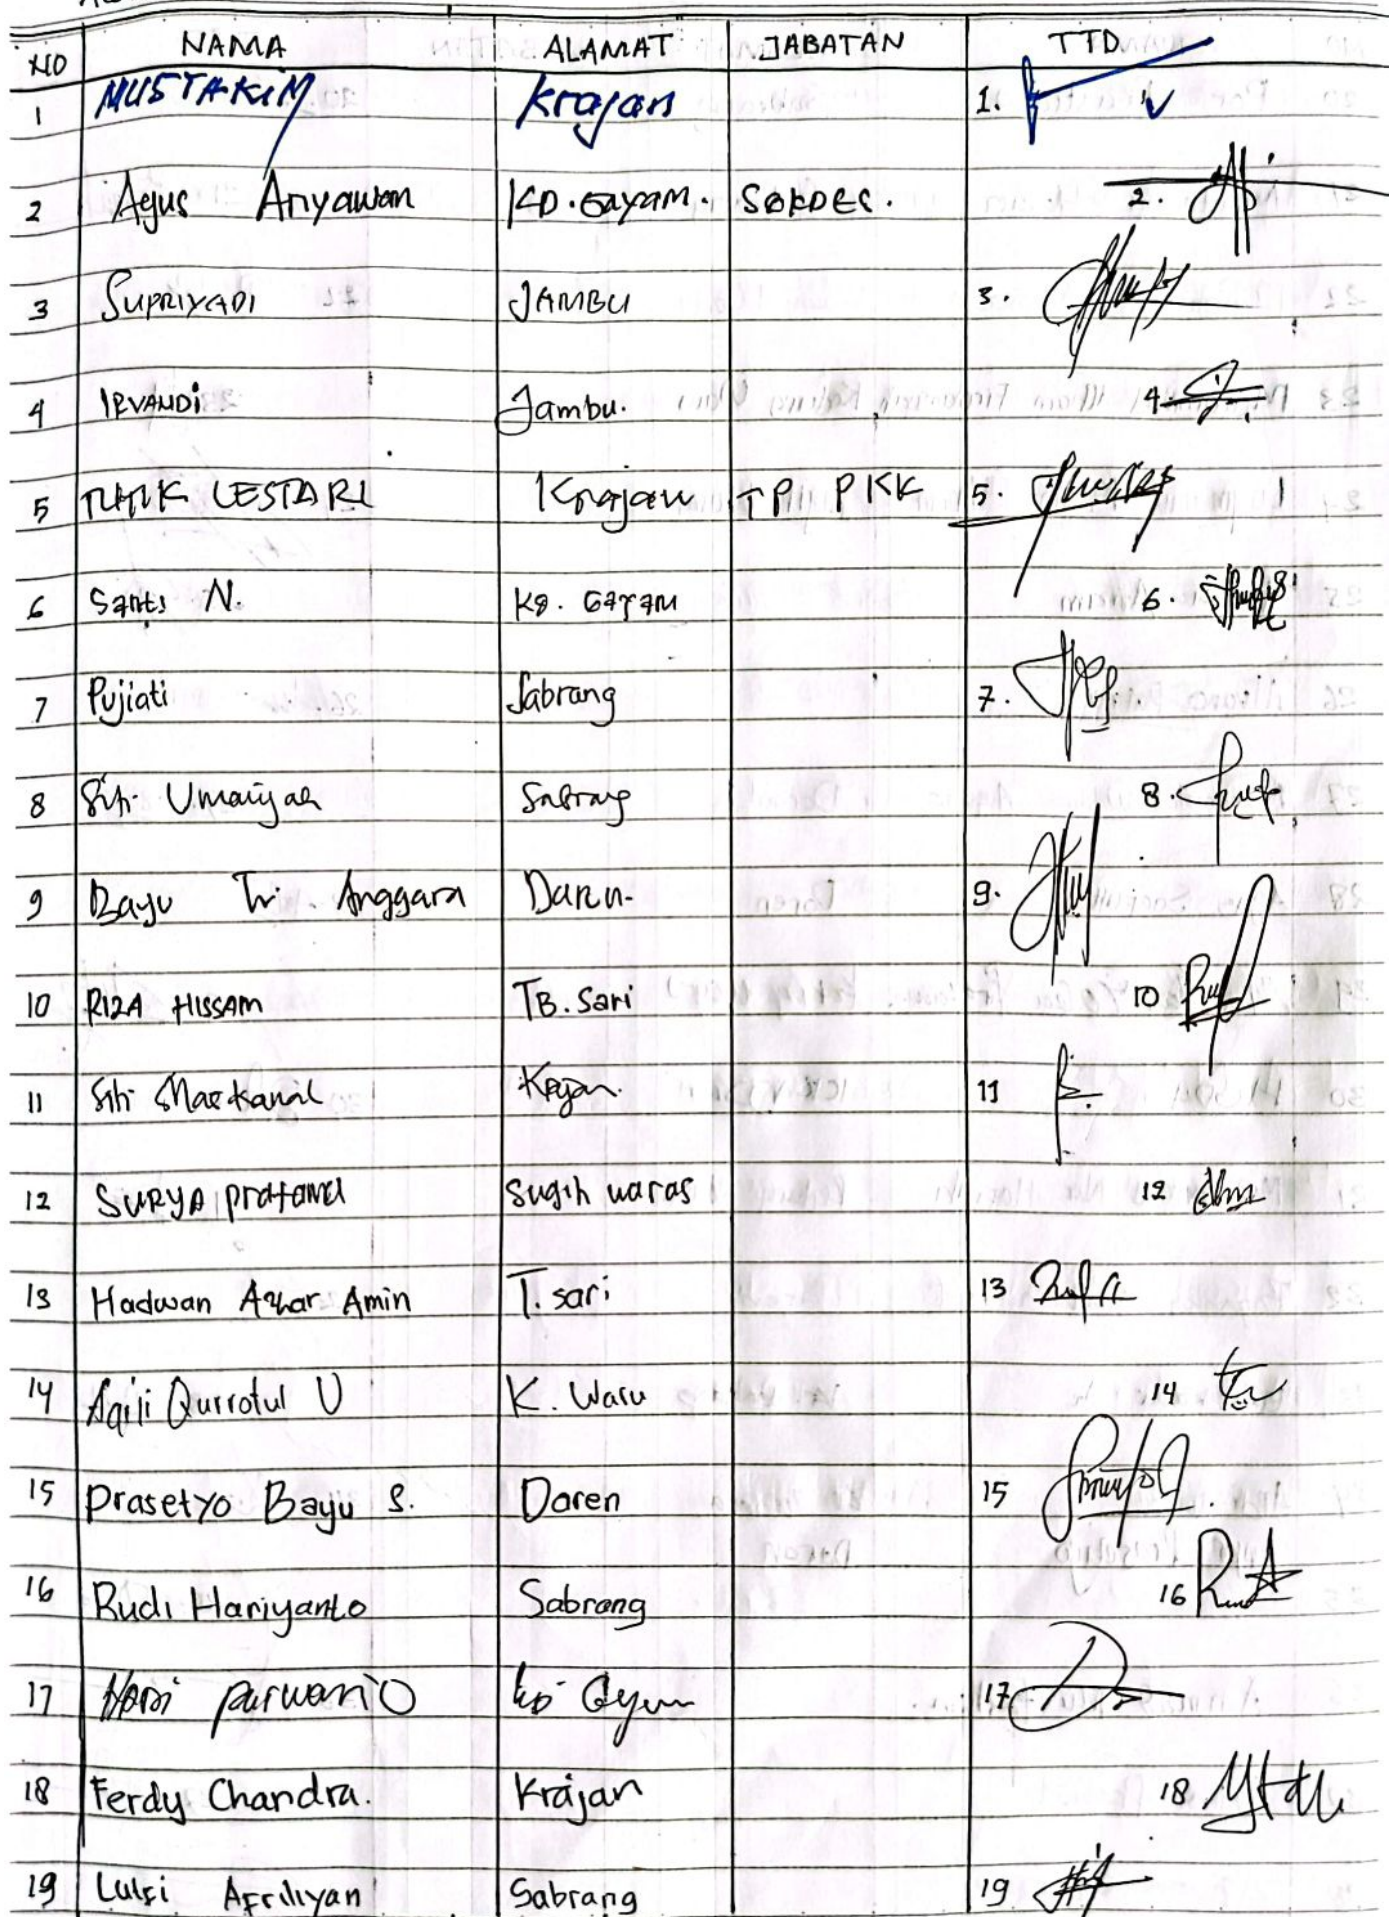 NO NAMA ALAMAT JABATAN TTD
1 MUSTAKIM Krajan 1.
2 Agus Ariyawan KD. Gayam. SEKDES. 2.
3 SUPRIYADI JAMBU 3.
4 IRVANDI Jambu. 4.
5 TITIK LESTARI Krajan TP PKK 5.
6 Santi N. KD. GAYAM 6.
7 Pujiati Sabrang 7.
8 Siti Umaiyah Sabrang 8.
9 Bayu Tri Anggara Daren. 9.
10 RIZA HISSAM TB. Sari 10
11 Siti Krajan. 11
12 SURYA pratama sugih waras 12
13 Hadwan Azhar Amin T. sari 13
14 Aqili Qurrotul U K. Waru 14
15 Prasetyo Bayu S. Doren 15
16 Rudi Hariyanto Sabrang 16
17 Hari purwanto KD 17
18 Ferdy Chandra. Krajan 18
19 Lulfi Afriliyan Sabrang 19